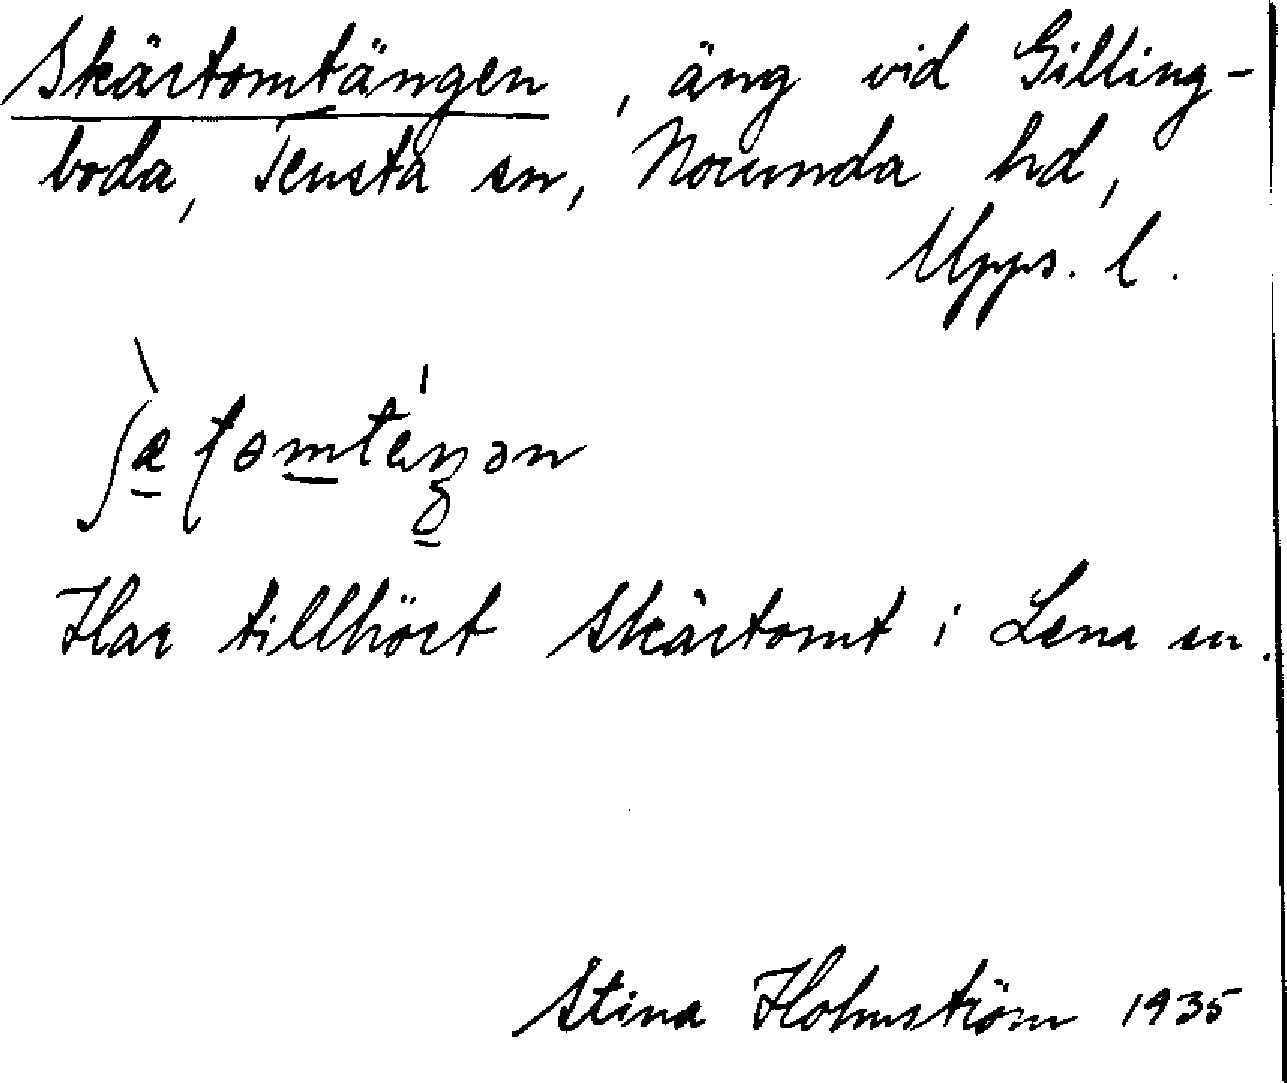 Skärtomtängen, äng vid Gilling-
boda, Tensta sn, Norunda hd,
Upps. l.
Har tillhört Skärtomt i Lena sn.
Stina Holmström 1935